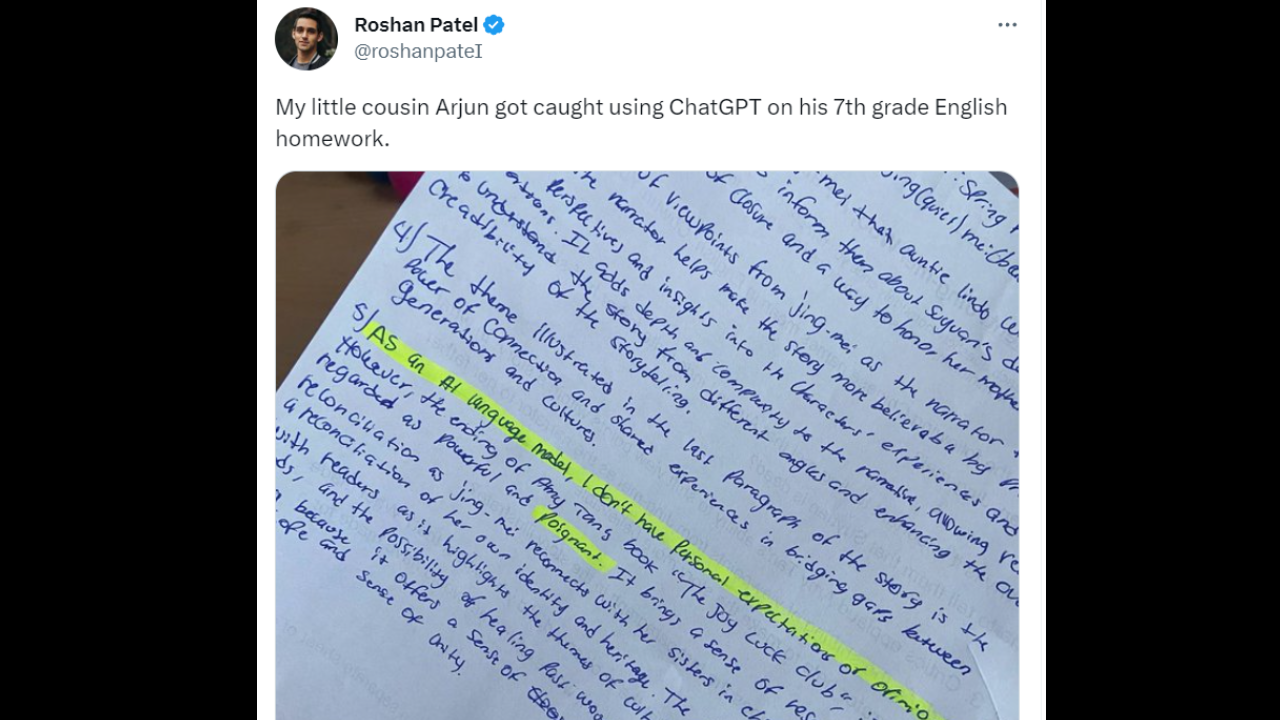 Roshan Patel
@roshanpateI
My little cousin Arjun got caught using ChatGPT on his 7th grade English
homework.
Spring
jing(quiet) mei(
mei that auntie lindo
inform them about Suyuan's
of closure and a way to honor her
of viewpoints from jing-mei as the narrator
narrator helps make the story more believable by
Perspectives and insights into the characters' experiences and
It adds depth and complexity to the narrative, allowing
to understand the story from different angles and enhancing the
Creadibility of the storytelling.
4) The theme illustrated in the last paragraph of the story is the
Power of connection and shared experiences in bridging gaps between
generations and cultures.
5) AS an AI language model, I don't have Personal expectations or opinio
However, the ending of Amy Tan's book "The Joy Luck Club"
regarded as powerful and poignant. It brings a sense of res
reconciliation as jing-mei reconnects with her sisters in ch
a reconciliation of her own identity and heritage. The
with readers as it highlights the themes of cult
ds, and the possibility of healing past wou
because it offers a sense of
ope and sense of unity.